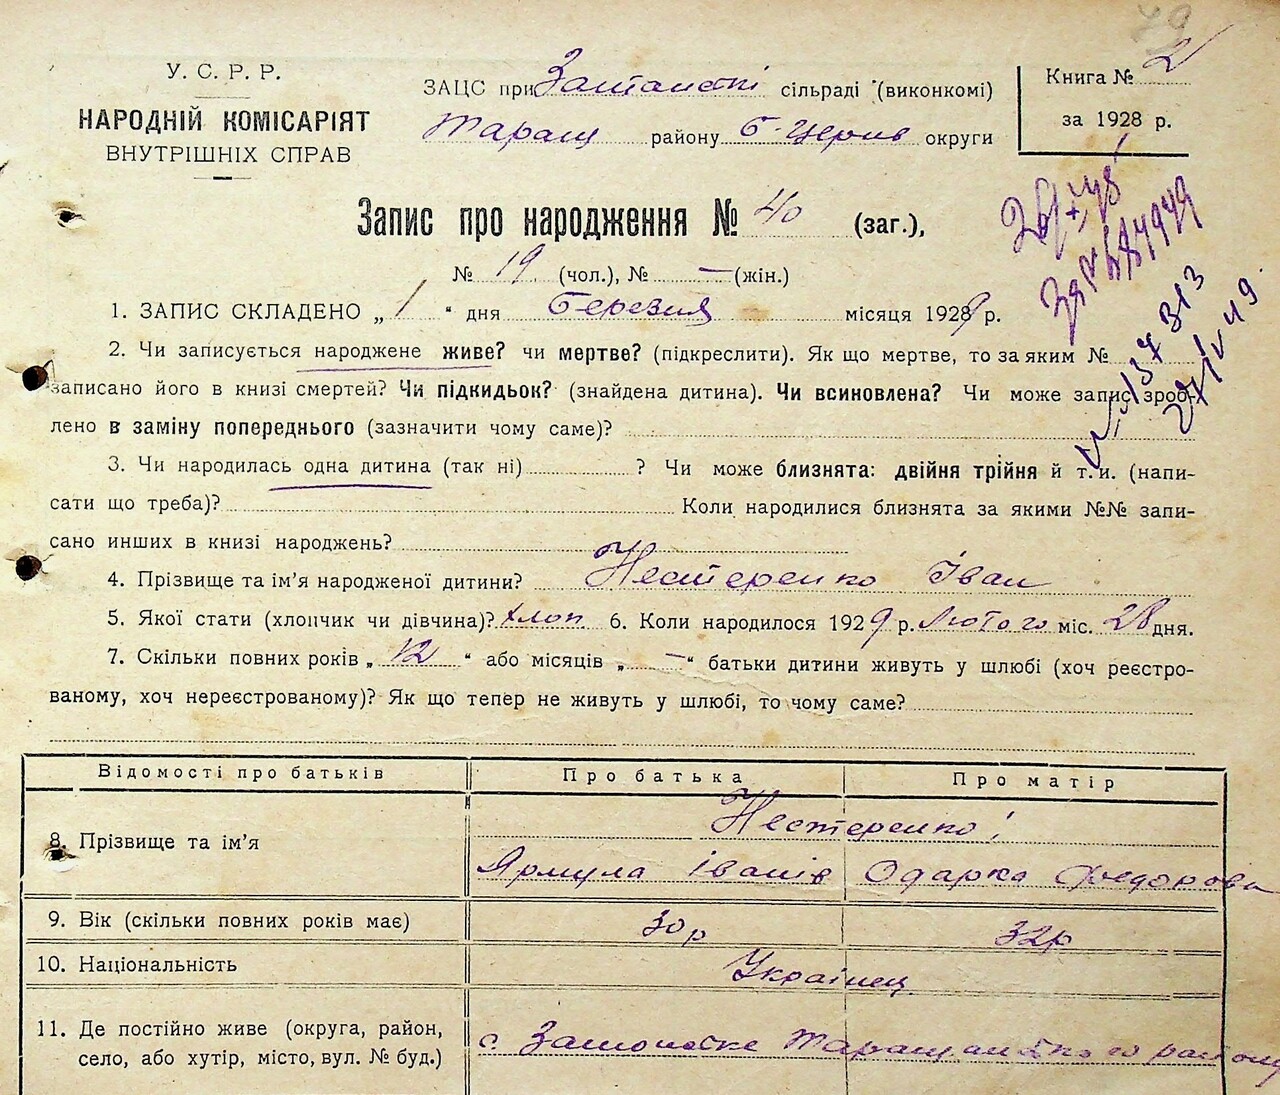 79
У. С. Р. Р.
НАРОДНІЙ КОМІСАРІЯТ
ВНУТРІШНІХ СПРАВ
ЗАЦС при сільраді (виконкомі)
Таращ району Б-Церкв округи
Книга № 2
за 1928 р.
Запис про народження № 40 (заг.),
№ 19 (чол.), № — (жін.)
1. ЗАПИС СКЛАДЕНО „ 1 " дня Березня місяця 1929 р.
2. Чи записується народжене живе? чи мертве? (підкреслити). Як що мертве, то за яким №
записано його в книзі смертей? Чи підкидьок? (знайдена дитина). Чи всиновлена? Чи може запис зроб-
лено в заміну попереднього (зазначити чому саме)?
3. Чи народилась одна дитина (так ні) ? Чи може близнята: двійня трійня й т. и. (напи-
сати що треба)? Коли народилися близнята за якими №№ запи-
сано инших в книзі народжень?
4. Прізвище та ім'я народженої дитини? Нестеренко Іван
5. Якої стати (хлопчик чи дівчина)? хлоп. 6. Коли народилося 1929 р. Лютого міс. 28 дня.
7. Скільки повних років „ 12 " або місяців „ — " батьки дитини живуть у шлюбі (хоч реєстро-
ваному, хоч нереєстрованому)? Як що тепер не живуть у шлюбі, то чому саме?
Відомості про батьків Про батька Про матір
8. Прізвище та ім'я Нестеренко
Ярмула Іванів Одарка Федорова
9. Вік (скільки повних років має) 30 р 32 р
10. Національність Українец
11. Де постійно живе (округа, район,
село, або хутір, місто, вул. № буд.) с. Таращанского району
137313
27/IV 49.